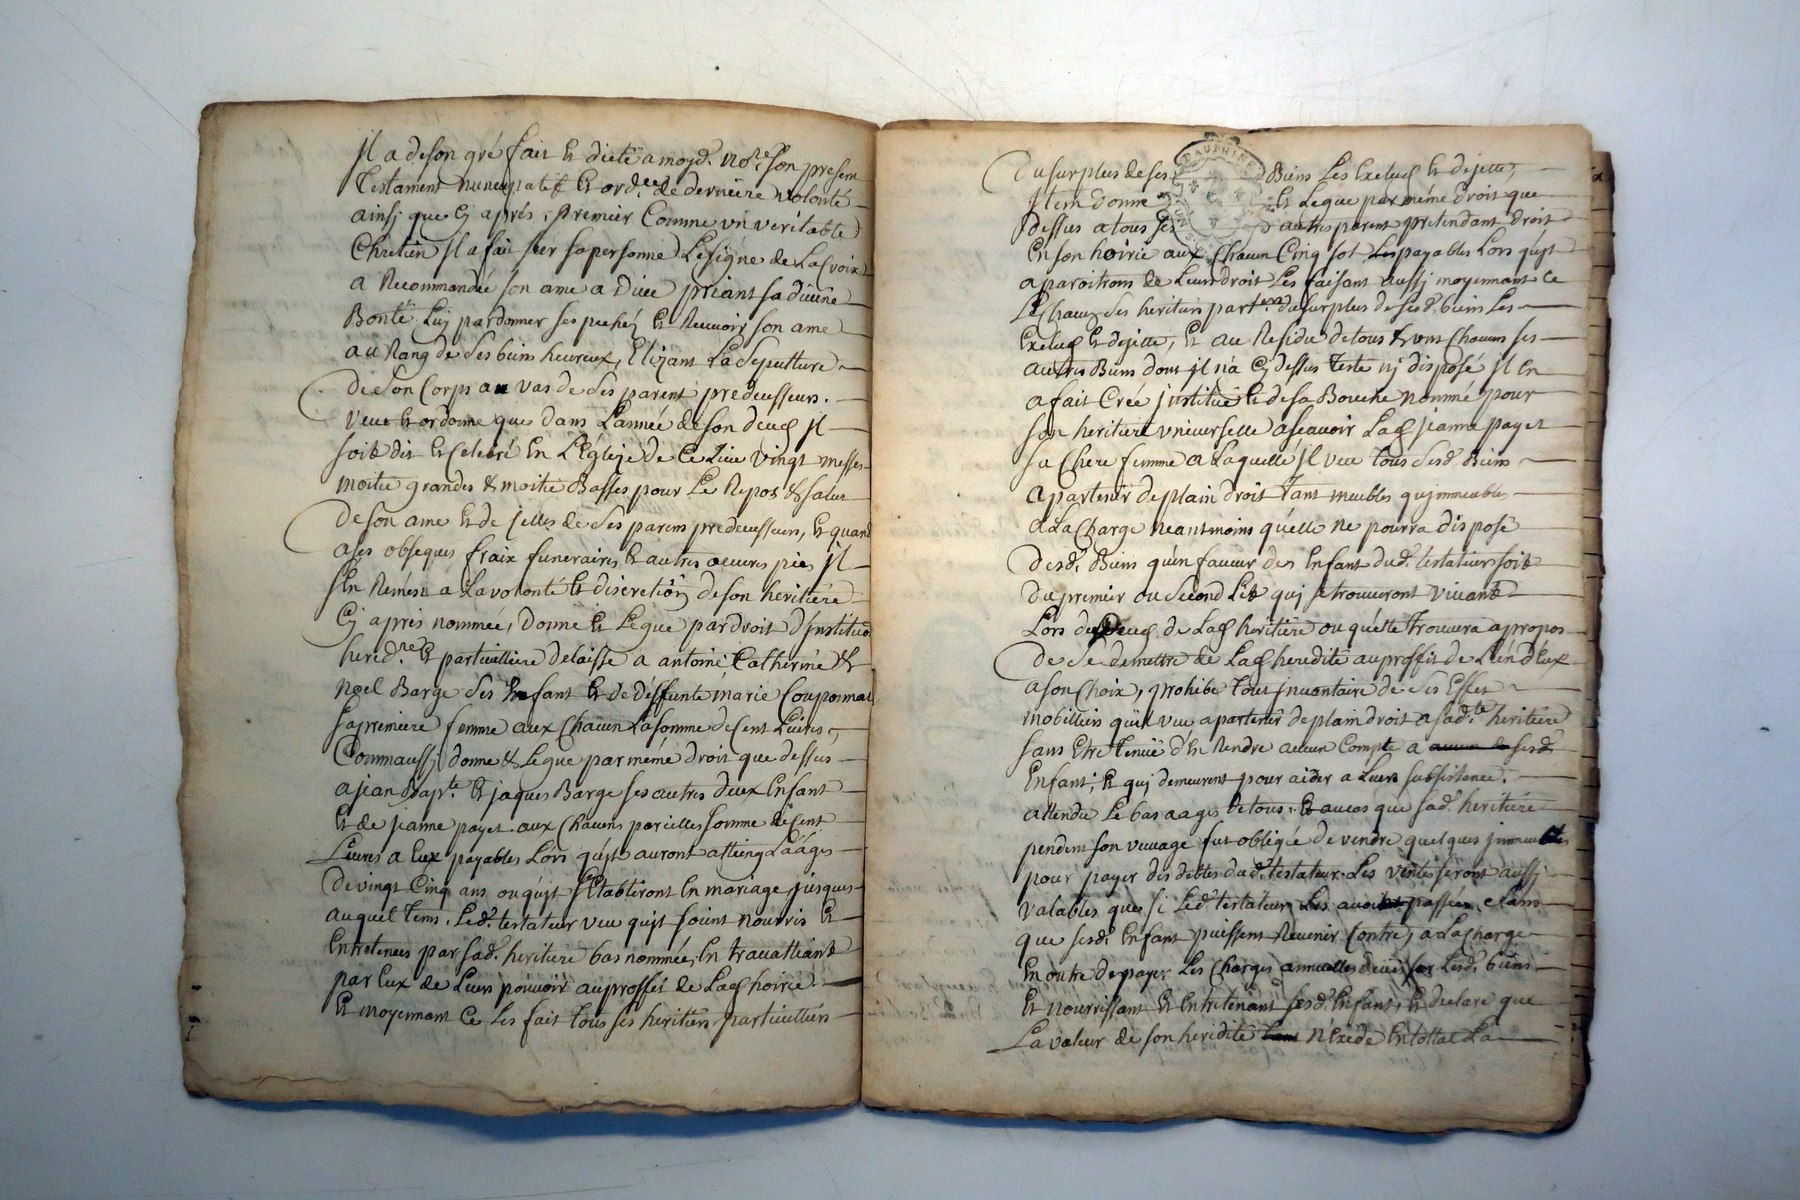 Il a de son gré fait et dicté a moyd. no.re son present
Testament nuncupatif et ord.ce de derniere volonté
ainsi que cy aprés, premier Comme un veritable
Chretien Il a fait sur sa personne Le signe de La Croix
a Recommandée son ame a Dieu priant sa divine
Bonté Luy pardonner ses pechéz et Recevoir son ame
au Rang de ses bien heureux, Elizant La Sepulture
de son Corps au vas de ses parent predecesseurs.
veut et ordonne que dans L'année de son deces Il
soit dit et Celebré en L'Eglize de Ce Lieu vingt messes
moitié grandes & moitié Basses pour Le Repos & salut
de son ame et de Celles de ses parens predecesseurs, et quand
a ses obseques fraix funeraires et autres oeuvres pies Il
s'en Remest a La volonté et discretion de son heritiere
Cy aprés nommée, Donne et Legue par droit d'Institution
hered.re et particulliere delaisse a antoine Catherine &
Noel Barge ses Enfant et de deffunte marie Couponnat
sa premiere femme aux Chacun La somme de Cent Livres,
Comm'aussy donne & Legue par méme droit que dessus
a jean Bap.te et jaques Barge ses autres deux Enfant
et de jeanne payet aux Chacuns pareilles somme de Cent
Livres a Eux payables Lors qu'ils auront atteing L'aages
de vingt Cinq ans ou qu'ils s'Etabliront en mariage, jusques
auquel tems. Led. testateur veu qu'ils soient nourris et
Entretenus par sad. heritiere bas nommée, en travaillant
par Eux de Leur pouvoir au proffit de Lad. hoirie.
et moyennant Ce Les fait tous ses heritiers particulliers
Du surplus de ses Biens Les Exclud et dejette,
DAUPHINE
Item donne et Legue par méme droit que
dessus a tous ses autres parent pretendant droit
en son hoirie aux Chacun Cinq sol payables Lors qu'ils
aparoitront de Leurs droit Les faisant aussy moyennant Ce
Les Chacuns ses heritiers part.ers du surplus de sesd. biens Les
Exclud et dejette, et au Residu de tous & uns Chacuns ses
autres Biens dont il n'a Cy dessus Testé ny disposé Il en
a fait Créé institué et de sa Bouche nommé pour
son heritiere universelle a scavoir Lad. jeanne payet
sa Chere femme a Laquelle Il veu tous sesd. Biens
apartenir de plain droit tant meubles qu'immeubles
a La Charge neantmoins qu'elle ne pourra disposé
desd. Biens qu'en faveur des Enfant dud. testateur soit
du premier ou second Lit qui se trouveront vivant
Lors du Deces de Lad. heritiere ou qu'elle trouvera a propos
de se demettre de Lad. heredité au proffit de L'un d'Eux
a son Choix, prohibe tout inventaire de ses Effets
mobilliers qu'il veu apartenir de plain droit a sad.te heritiere
sans Etre tenüe d'en Rendre aucun Compte a sesd.
Enfant; et qui demeurent pour aider a Leur subsistence.
attendu Le bas aages de tous. et au cas que sad. heritiere
pendent son veuvage fut obligée de vendre quelques immeubles
pour payer des dettes dud. testateur Les ventes seront aussy
valables que si Led. testateur Les avoit passées, & sans
que sesd. Enfant puissent Revenir Contre, a La Charge
en outre de payer Les Charges annuelles deües sur Lesd. biens
et nourrissant et entretenant sesd. Enfant, et declare que
La valeur de son heridité n'Exede en total La